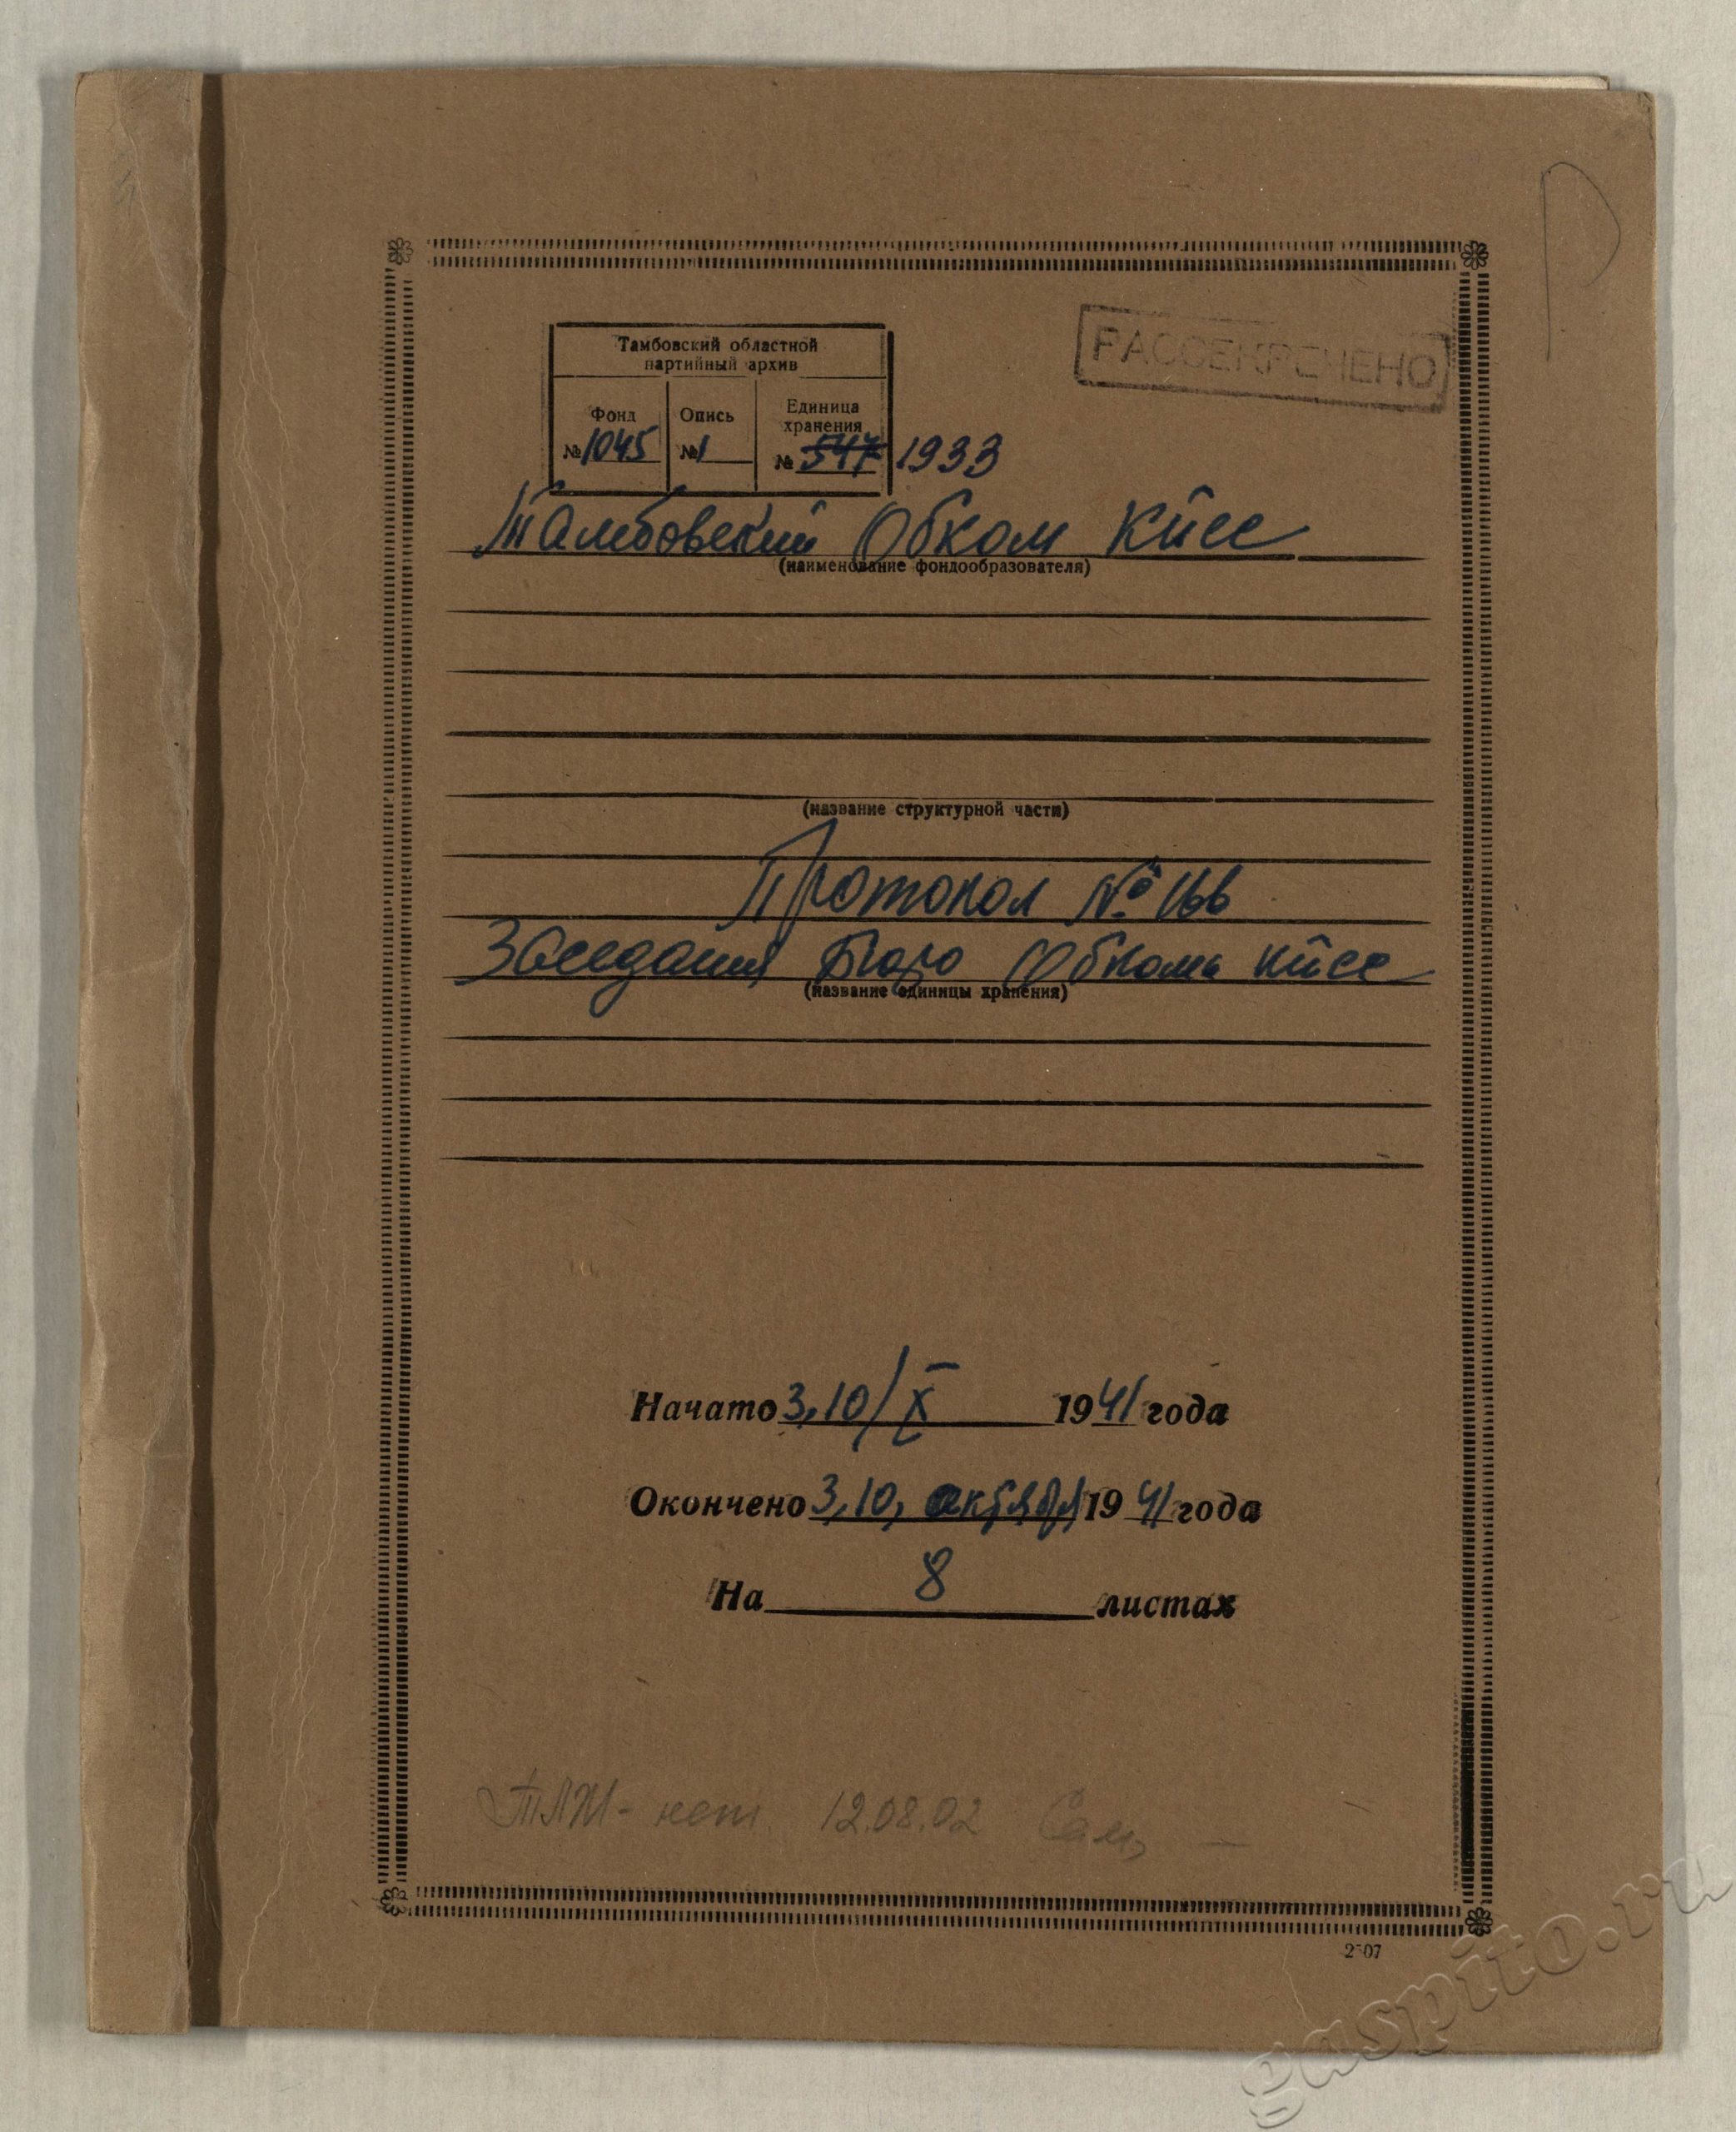 Тамбовский областной
партийный архив
РАССЕКРЕЧЕНО
Фонд
№ 1045
Опись
№ 1
Единица
хранения
№ 547 1933
Тамбовский Обком КПСС
(наименование фондообразователя)
(название структурной части)
Протокол № 166
Заседания Бюро Обкома КПСС
(название единицы хранения)
Начато 3,10/X 1941 года
Окончено 3,10, октября 1941 года
На 8 листах
нет. 12.08.02
gaspito.ru